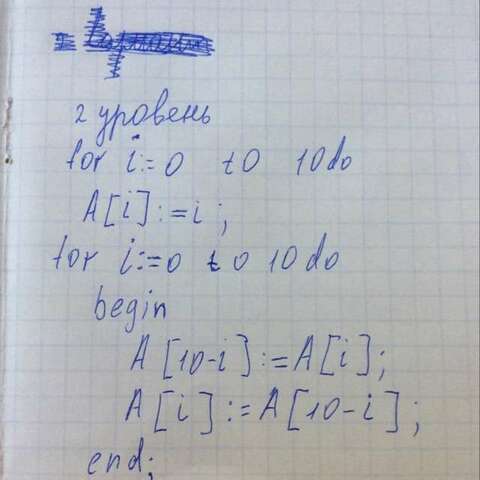 2 уровень
for i:=0 to 10 do
A[i]:=i;
for i:=0 to 10 do
begin
A[10-i]:=A[i];
A[i]:=A[10-i];
end;